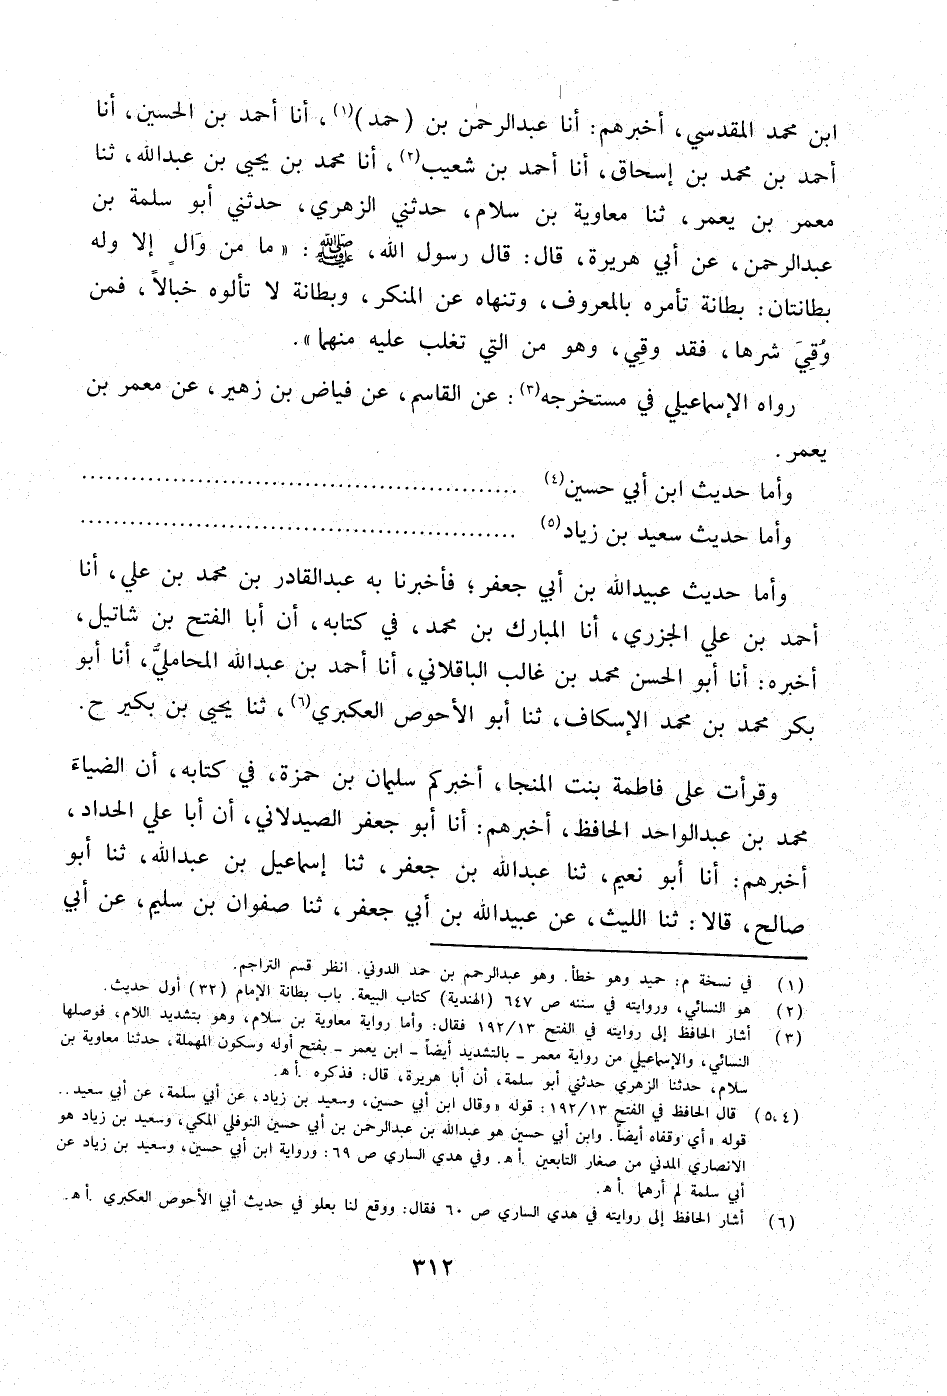 ابن محمد المقدسي، أخبرهم: أنا عبدالرحمن بن (حمد)(١)، أنا أحمد بن الحسين، أنا
أحمد بن محمد بن إسحاق، أنا أحمد بن شعيب(٢)، أنا محمد بن يحيى بن عبدالله، ثنا
معمر بن يعمر، ثنا معاوية بن سلام، حدثني الزهري، حدثني أبو سلمة بن
عبدالرحمن، عن أبي هريرة، قال: قال رسول الله، ﷺ: «ما من وَالٍ إلا وله
بطانتان: بطانة تأمره بالمعروف، وتنهاه عن المنكر، وبطانة لا تألوه خبالاً، فمن
وُقِيَ شرها، فقد وقِي، وهو من التي تغلب عليه منهما».
رواه الإسماعيلي في مستخرجه(٣): عن القاسم، عن فياض بن زهير، عن معمر بن
يعمر.
وأما حديث ابن أبي حسين(٤) ..................................................
وأما حديث سعيد بن زياد(٥) ..................................................
وأما حديث عبيدالله بن أبي جعفر؛ فأخبرنا به عبدالقادر بن محمد بن علي، أنا
أحمد بن علي الجزري، أنا المبارك بن محمد، في كتابه، أن أبا الفتح بن شاتيل،
أخبره: أنا أبو الحسن محمد بن غالب الباقلاني، أنا أحمد بن عبدالله المحامليُّ، أنا أبو
بكر محمد بن محمد الإسكاف، ثنا أبو الأحوص العكبري(٦)، ثنا يحيى بن بكير ح.
وقرأت على فاطمة بنت المنجا، أخبركم سليمان بن حمزة، في كتابه، أن الضياءَ
محمد بن عبدالواحد الحافظ، أخبرهم: أنا أبو جعفر الصيدلاني، أن أبا علي الحداد،
أخبرهم: أنا أبو نعيم، ثنا عبدالله بن جعفر، ثنا إسماعيل بن عبدالله، ثنا أبو
صالح، قالا: ثنا الليث، عن عبيدالله بن أبي جعفر، ثنا صفوان بن سليم، عن أبي
(١) في نسخة م: حميد وهو خطأ. وهو عبدالرحمن بن حمد الدوني. انظر قسم التراجم.
(٢) هو النسائي، وروايته في سننه ص ٦٤٧ (الهندية) كتاب البيعة. باب بطانة الإمام (٣٢) أول حديث.
(٣) أشار الحافظ إلى روايته في الفتح ١٩٢/١٣ فقال: وأما رواية معاوية بن سلام، وهو بتشديد اللام، فوصلها
النسائي، والإسماعيلي من رواية معمر - بالتشديد أيضاً - ابن يعمر - بفتح أوله وسكون المهملة، حدثنا معاوية بن
سلام، حدثنا الزهري حدثني أبو سلمة، أن أبا هريرة، قال: فذكره .أ هـ.
(٤، ٥) قال الحافظ في الفتح ١٩٢/١٣: قوله «وقال ابن أبي حسين، وسعيد بن زياد، عن أبي سلمة، عن أبي سعيد..
قوله «أي وقفاه أيضاً. وابن أبي حسين هو عبدالله بن عبدالرحمن بن أبي حسين النوفلي المكي، وسعيد بن زياد هو
الانصاري المدني من صغار التابعين .أ هـ. وفي هدي الساري ص ٦٩: ورواية ابن أبي حسين، وسعيد بن زياد عن
أبي سلمة لم أرهما .أ هـ.
(٦) أشار الحافظ إلى روايته في هدي الساري ص ٦٠ فقال: ووقع لنا بعلو في حديث أبي الأحوص العكبري .أ هـ.
٣١٢